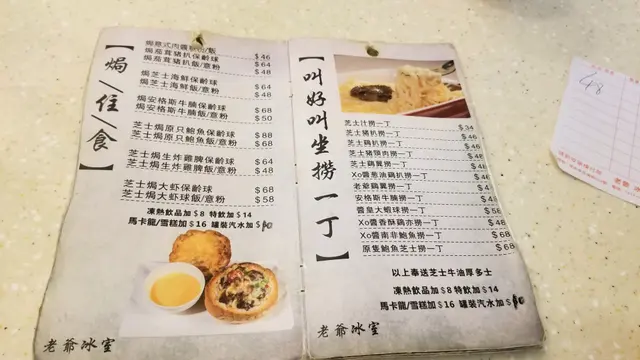 【焗/住/食】
焗意式肉醬 /飯
焗茄茸豬扒保齡球 $46
焗茄茸豬扒飯/意粉 $64
$48
焗芝士海鮮保齡球
焗芝士海鮮飯/意粉 $64
$48
焗安格斯牛腩保齡球 $68
焗安格斯牛腩飯/意粉 $50
芝士焗原只鮑魚保齡球 $88
芝士焗原只鮑魚飯/意粉 $68
芝士焗生炸雞脾保齡球 $64
芝士焗生炸雞脾飯/意粉 $48
芝士焗大蝦保齡球 $68
芝士焗大蝦球飯/意粉 $58
凍熱飲品加$8 特飲加$14
馬卡龍/雪糕加$16 罐裝汽水加$10
老爺冰室
【叫好叫坐撈一丁】
芝士汁撈一丁 $34
芝士豬扒撈一丁 $46
芝士鷄扒撈一丁 $46
芝士豬頸肉撈一丁 $48
芝士鷄翼撈一丁
Xo醬葱油鷄扒撈一丁
老爺鷄翼撈一丁
安格斯牛腩撈一丁
醬皇大蝦球撈一丁 $58
Xo醬香酥鷄亦撈一丁
Xo醬南非鮑魚撈一丁 $68
原隻鮑魚芝士撈一丁 $68
以上奉送芝士牛油厚多士
凍熱飲品加$8 特飲加$14
馬卡龍/雪糕加$16 罐裝汽水加$10
老爺冰室
48